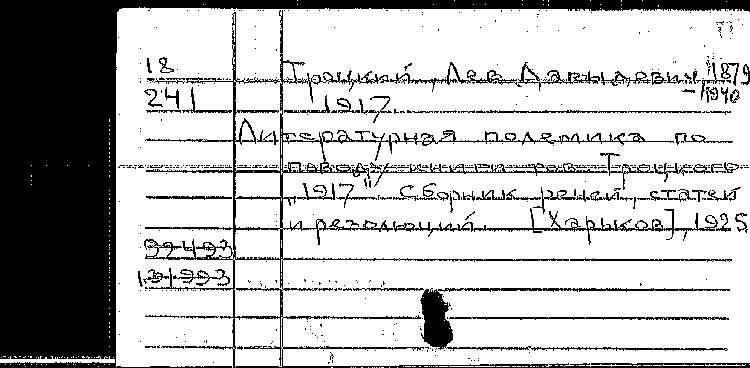 18 Троцкий, Лев Давыдович, 1879
241 1917. – 1940
Литературная полемика по
поводу книги тов. Троцкого
„1917". Сборник речей, статей
и резолюций. [Харьков], 1925
99493
131993